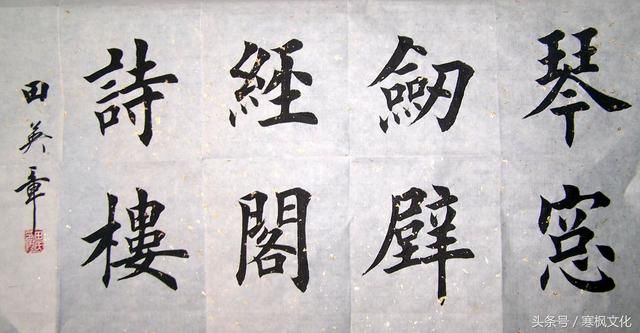 琴窓
劒壁
經閣
詩樓
田英章
头条号／寒枫文化